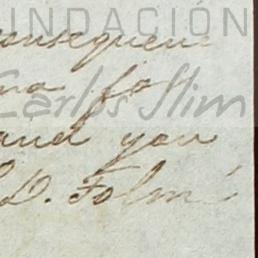 FUNDACIÓN
consequen
no for
Carlos Slim
and you
D. Folm